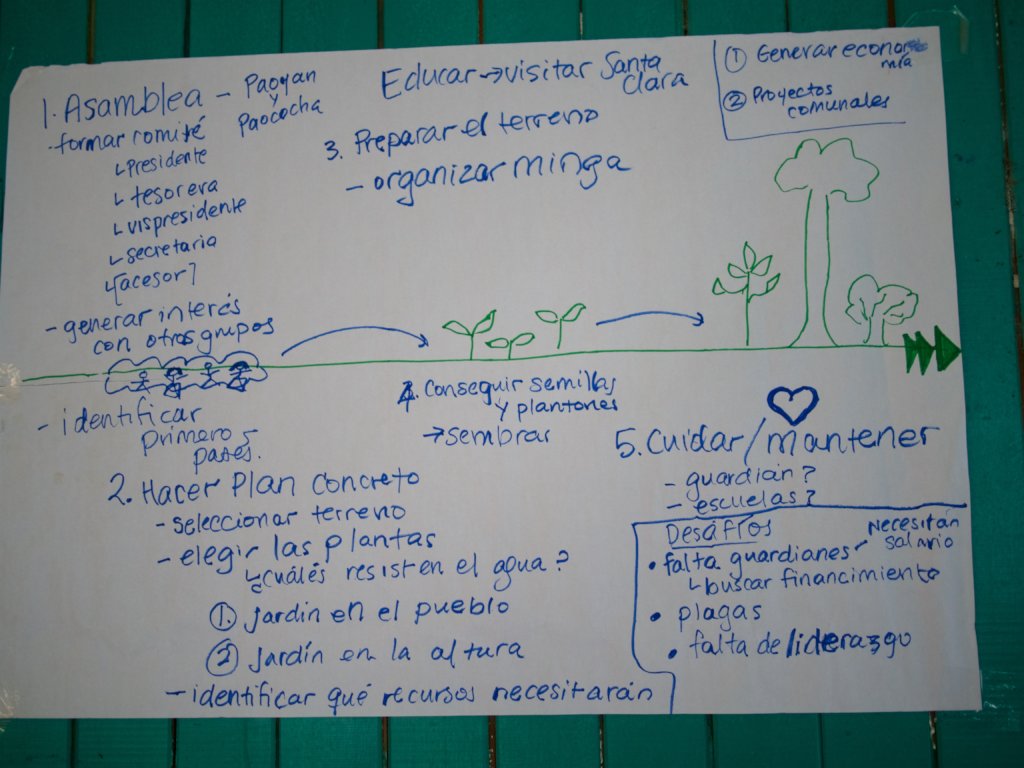 1. Asamblea - Paoyan
y
Paococha
- formar comité
↳ Presidente
↳ tesorera
↳ vispresidente
↳ secretaria
↳ [acesor]
- generar interés
con otros grupos
- identificar
primeros
pases.
Educar → visitar Santa
Clara
3. Preparar el terreno
- organizar minga
① Generar econo
mía
② Proyectos
comunales
2. Hacer Plan Concreto
- seleccionar terreno
- elegir las plantas
↳ ¿cuáles resisten el agua?
①. Jardin en el pueblo
② Jardín en la altura
- identificar qué recursos necesitarán
4. Conseguir semillas
y plantones
→ sembrar
5. Cuidar/mantener
- guardián?
- escuelas?
Desafíos
• falta guardianes - Necesitan
salario
↳ buscar financimiento
• plagas
• falta de liderazgo